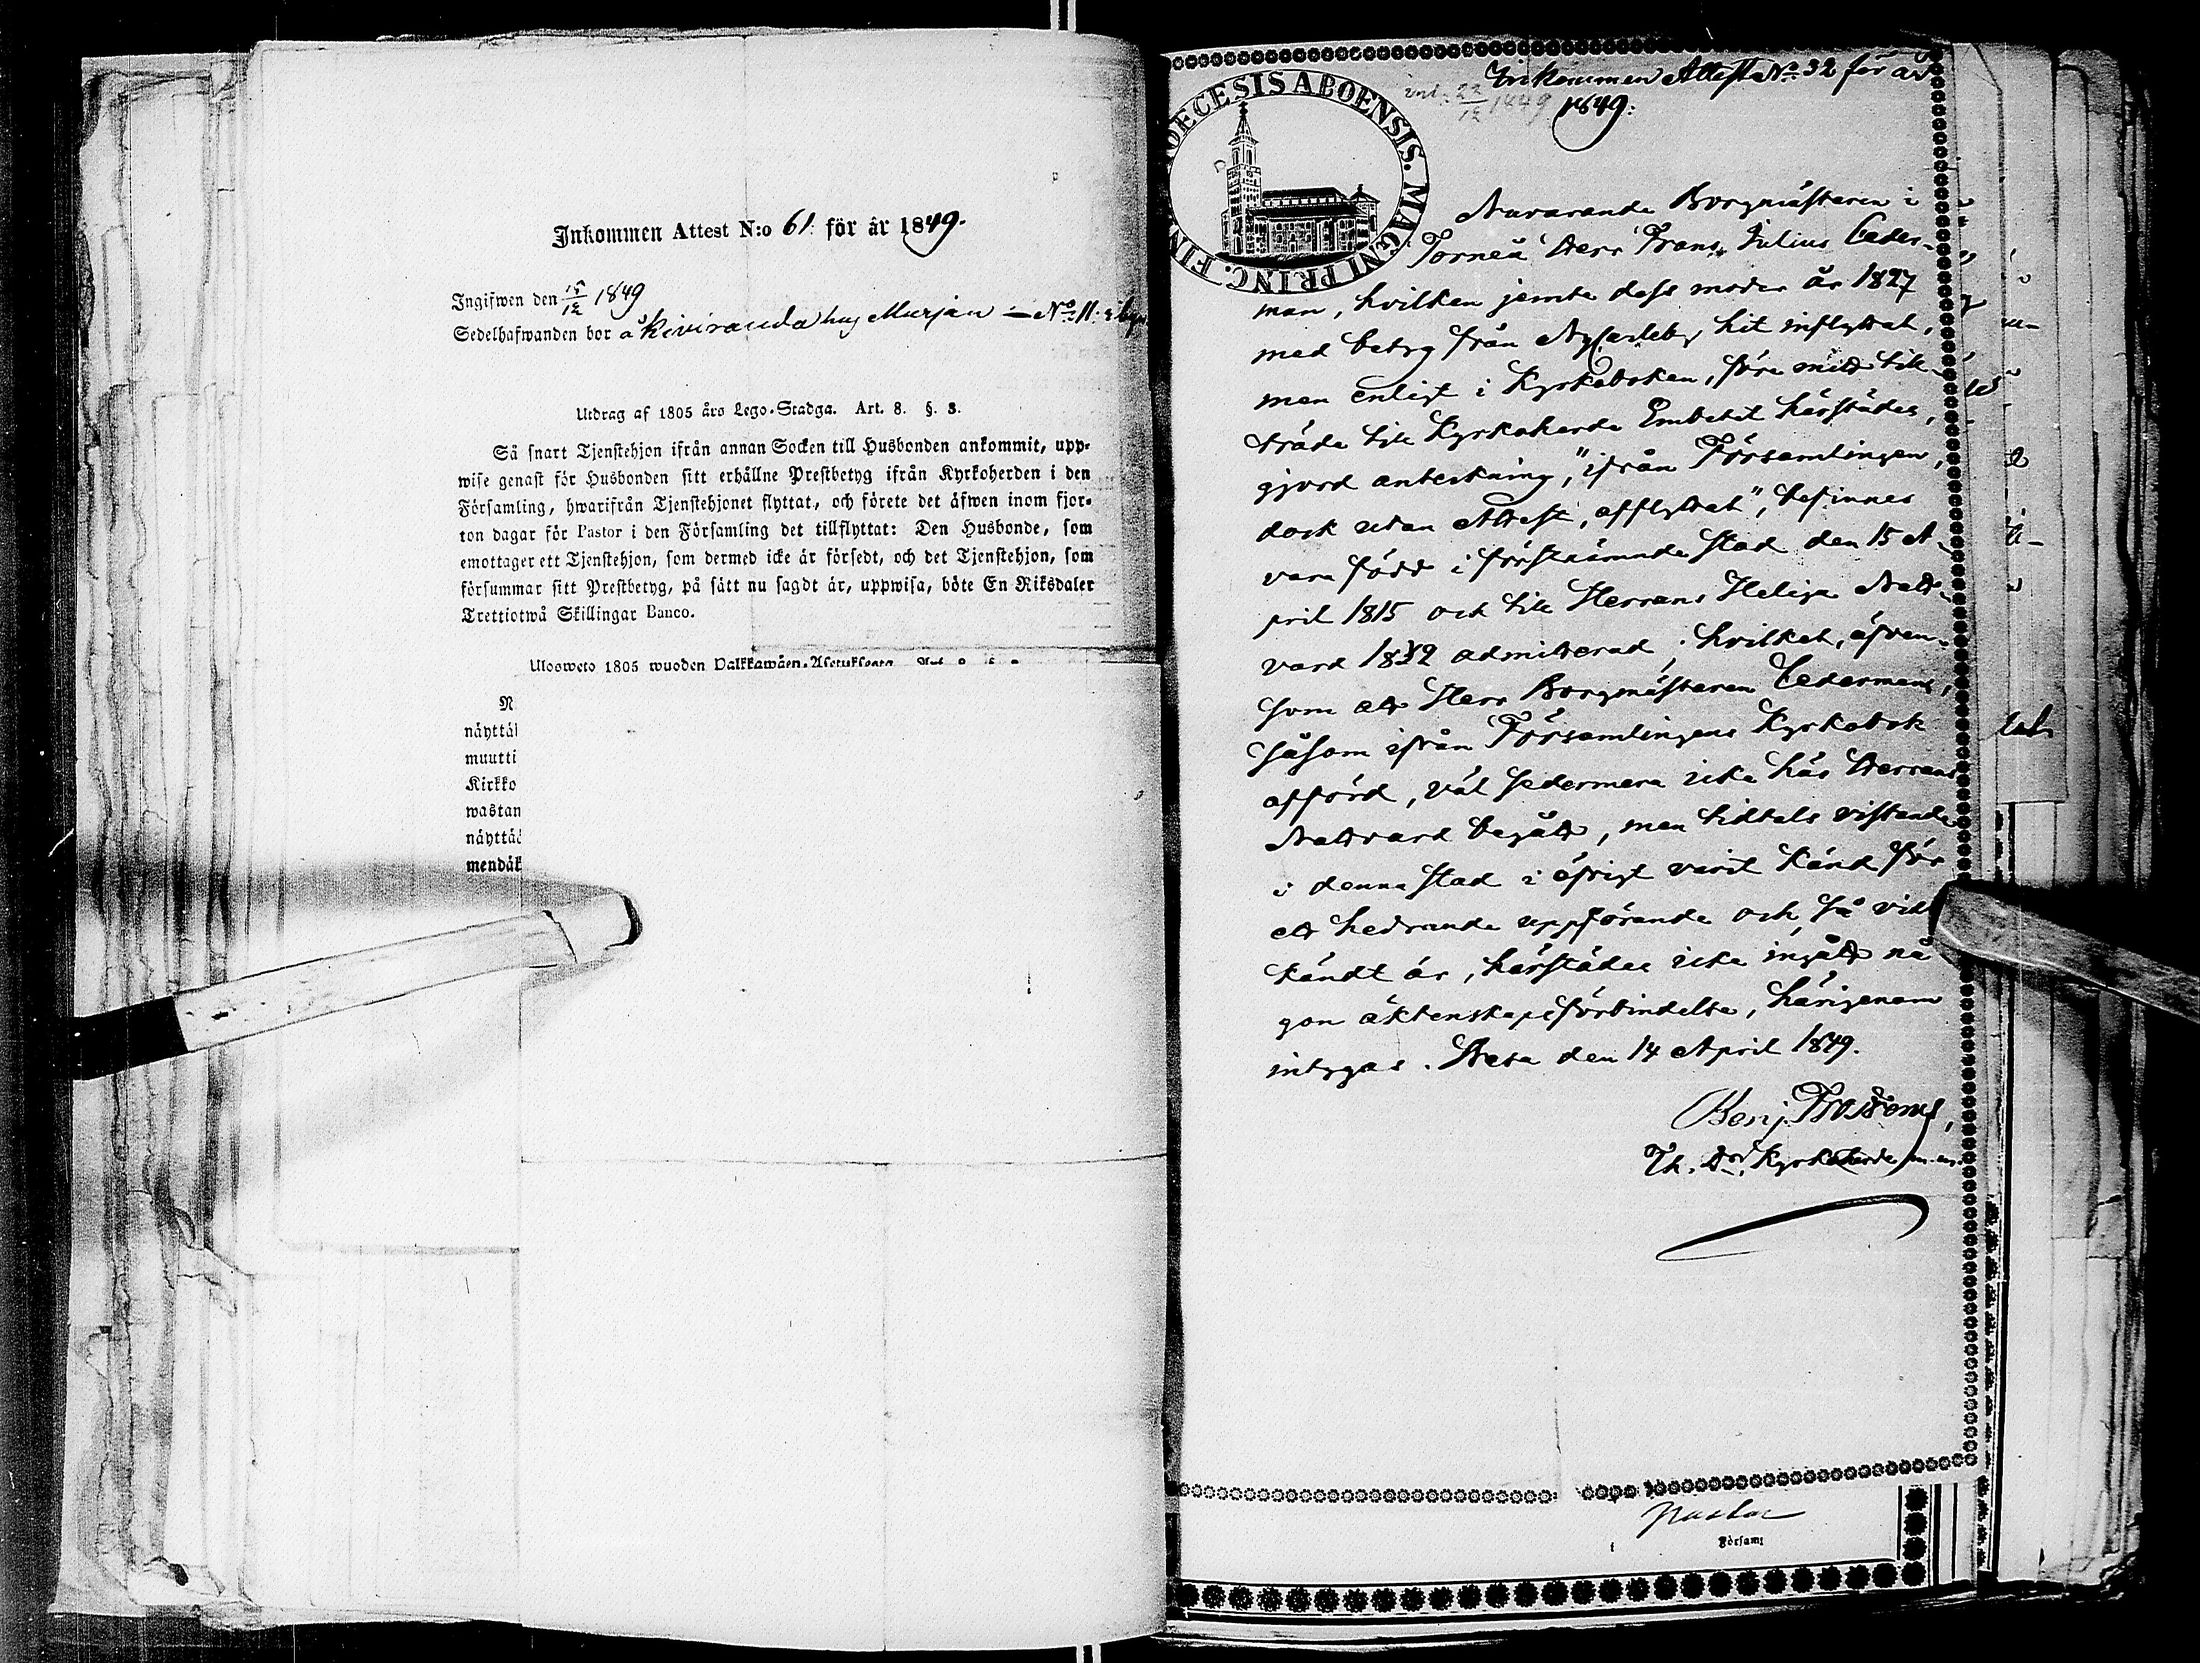 Inkommen Attest N:o 61. för år 1849.
Ingifwen den 15/12 1849
Sedelhafwanden bor å Kiviranda hus Murjan — No 11. i
Utdrag af 1805 års Lego-Stadga. Art. 8. §. 3.
Så snart Tjenstehjon ifrån annan Socken till Husbonden ankommit, upp-
wise genast för Husbonden sitt erhållne Prestbetyg ifrån Kyrkoherden i den
Församling, hwarifrån Tjenstehjonet flyttat, och förete det äfwen inom fjor-
ton dagar för Pastor i den Församling det tillflyttat: Den Husbonde, som
emottager ett Tjenstehjon, som dermed icke är försedt, och det Tjenstehjon, som
försummar sitt Prestbetyg, på sätt nu sagdt är, uppwisa, böte En Riksdaler
Trettiotwå Skillingar Banco.
Ulosweto 1805 wuoden Palkkawäen-Asetuksesta
N
näyttä
muutti
Kirkko
wastan
näyttä
mendäk
Inkommen Attest No 32 för år
inl. 22/12 1849 1849.
DIOECESIS ABOENSIS. MAGNI PRINC. FIN
Nuvarande Borgmästaren i
Torneå Herr Frans Julius Ceder-
man, hvilken jemte dess moder år 1827
med betyg från NyCarleby hit inflyttat,
men enligt i Kyrkoboken, före mitt till-
träde till Kyrkoherde Embetet härstädes,
gjord anteckning, "ifrån Församlingen,
dock utan Attest, afflyttat", befinnes
vara född i förstnämnde stad den 15 A-
pril 1815 och till Herrans Heliga Natt-
vard 1832 admitterad; hvilket, äfven-
som att Herr Borgmästaren Cederman,
såsom ifrån Församlingens Kyrkobok
afförd, väl sedermera icke här Herrans
Nattvard begått, men tidtals vistande
i denna stad i öfrigt varit känd för
ett hedrande uppförande och, så vidt
kändt är, härstädes icke ingått nå
gon äktenskapsförbindelse, härigenom
intygas. Vasa den 14 April 1849.
Benj. Frosterus,
Th. Dr, Kyrkoherde
Pastor
Församl